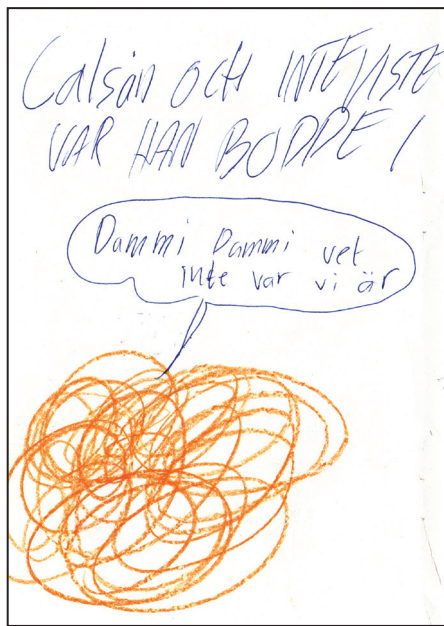 Calsån OCH INTE VISTE
VAR HAN BODDE!
Dammi Dammi vet
inte var vi är